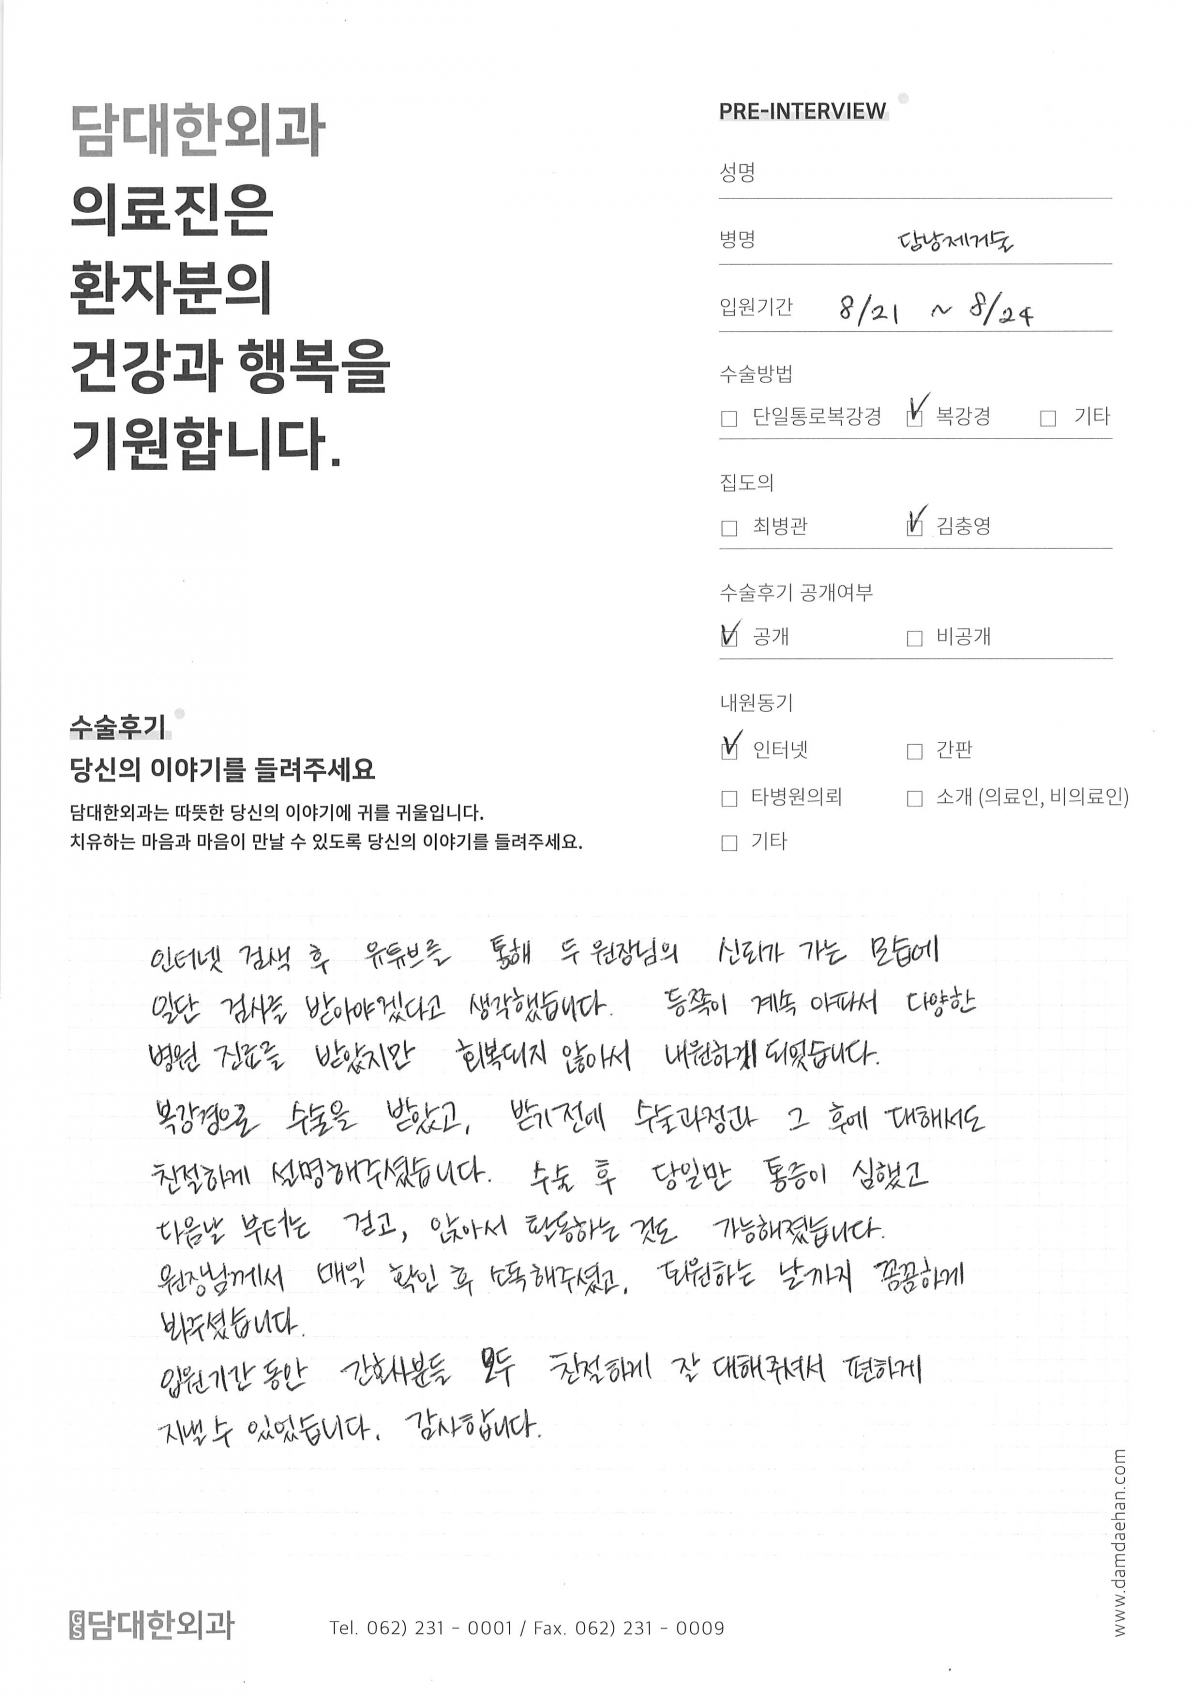 담대한외과
의료진은
환자분의
건강과 행복을
기원합니다.
PRE-INTERVIEW
성명
병명 담낭제거술
입원기간 8/21 ~ 8/24
수술방법
단일통로복강경 복강경 기타
집도의
최병관 김충영
수술후기 공개여부
공개 비공개
내원동기
인터넷 간판
타병원의뢰 소개 (의료인, 비의료인)
기타
수술후기
당신의 이야기를 들려주세요
담대한외과는 따뜻한 당신의 이야기에 귀를 귀울입니다.
치유하는 마음과 마음이 만날 수 있도록 당신의 이야기를 들려주세요.
인터넷 검색 후 유튜브를 통해 두 원장님의 신뢰가 가는 모습에
일단 검사를 받아야겠다고 생각했습니다. 등쪽이 계속 아파서 다양한
병원 진료를 받았지만 회복되지 않아서 내원하게 되었습니다.
복강경으로 수술을 받았고, 받기전에 수술과정과 그 후에 대해서도
친절하게 설명해주셨습니다. 수술 후 당일만 통증이 심했고
다음날 부터는 걷고, 앉아서 활동하는 것도 가능해졌습니다.
원장님께서 매일 확인 후 소독해주셨고, 퇴원하는 날까지 꼼꼼하게
봐주셨습니다.
입원기간 동안 간호사분들 모두 친절하게 잘 대해주셔서 편하게
지낼 수 있었습니다. 감사합니다.
GS 담대한외과
Tel. 062) 231 - 0001 / Fax. 062) 231 - 0009
www.damdaehan.com